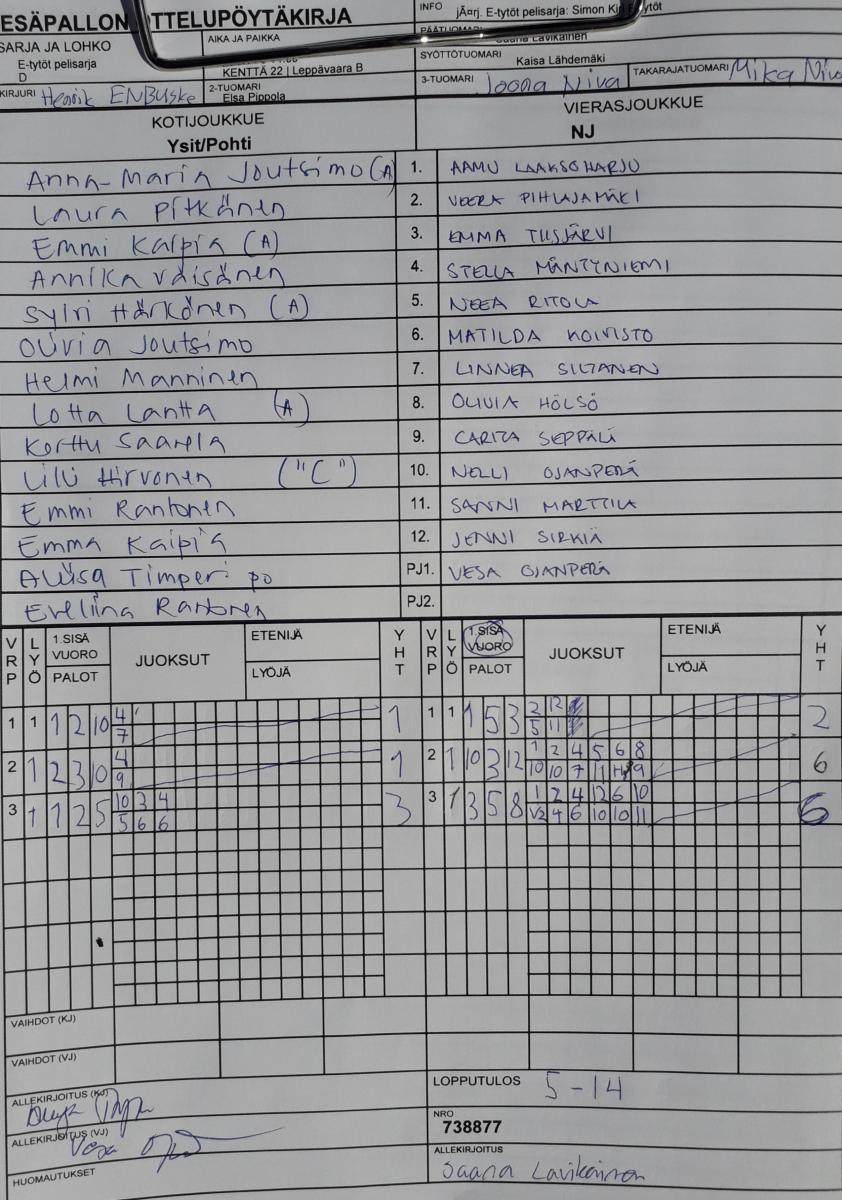 ESÄPALLON OTTELUPÖYTÄKIRJA
INFO jÃ¤rj. E-tytöt pelisarja: Simon
SARJA JA LOHKO
AIKA JA PAIKKA
PÄÄTUOMARI
Saana Lavikainen
E-tytöt pelisarja
D
KENTTÄ 22 | Leppävaara B
SYÖTTÖTUOMARI Kaisa Lähdemäki
KIRJURI Henrik ENBUSKE
2-TUOMARI Elsa Pippola
3-TUOMARI Joona Niva
TAKARAJATUOMARI Mika Niva
KOTIJOUKKUE
Ysit/Pohti
VIERASJOUKKUE
NJ
Anna-Maria Joutsimo (A) 1. AAMU LAAKSOHARJU
Laura Pitkänen 2. VEERA PIHLAJAMÄKI
Emmi Kaipia (A) 3. EMMA TUSJÄRVI
Annika Väisänen 4. STELLA MÄNTYNIEMI
Sylvi Härkönen (A) 5. NEEA RITOLA
Olivia Joutsimo 6. MATILDA KOIVISTO
Helmi Manninen 7. LINNEA SILTANEN
Lotta Lantta (A) 8. OLIVIA HÖLSÖ
Kerttu Saarela 9. CARITA SEPPÄLÄ
Lilli Hirvonen ("C") 10. NELLI OJANPERÄ
Emmi Rantonen 11. SANNI MARTTILA
Emma Kaipia 12. JENNI SIRKIÄ
Aliisa Timperi po PJ1. VESA OJANPERÄ
Eveliina Rantonen PJ2.
VRP LYÖ 1.SISÄ VUORO PALOT JUOKSUT ETENIJÄ LYÖJÄ YHT VRP LYÖ 1.SISÄ VUORO PALOT JUOKSUT ETENIJÄ LYÖJÄ YHT
1 1 1 2 10 4 1 1 1 1 5 3 2 12 2
7 5 11
2 1 2 3 10 4 1 2 1 10 3 12 1 2 4 5 6 8 6
9 10 10 7 11 9
3 1 1 2 5 10 3 4 3 3 1 3 5 8 1 2 4 12 6 10 6
5 6 6 V2 4 6 10 10 11
VAIHDOT (KJ)
VAIHDOT (VJ)
ALLEKIRJOITUS (KJ)
LOPPUTULOS 5-14
ALLEKIRJOITUS (VJ) Vesa
NRO
738877
HUOMAUTUKSET
ALLEKIRJOITUS
Saana Lavikainen